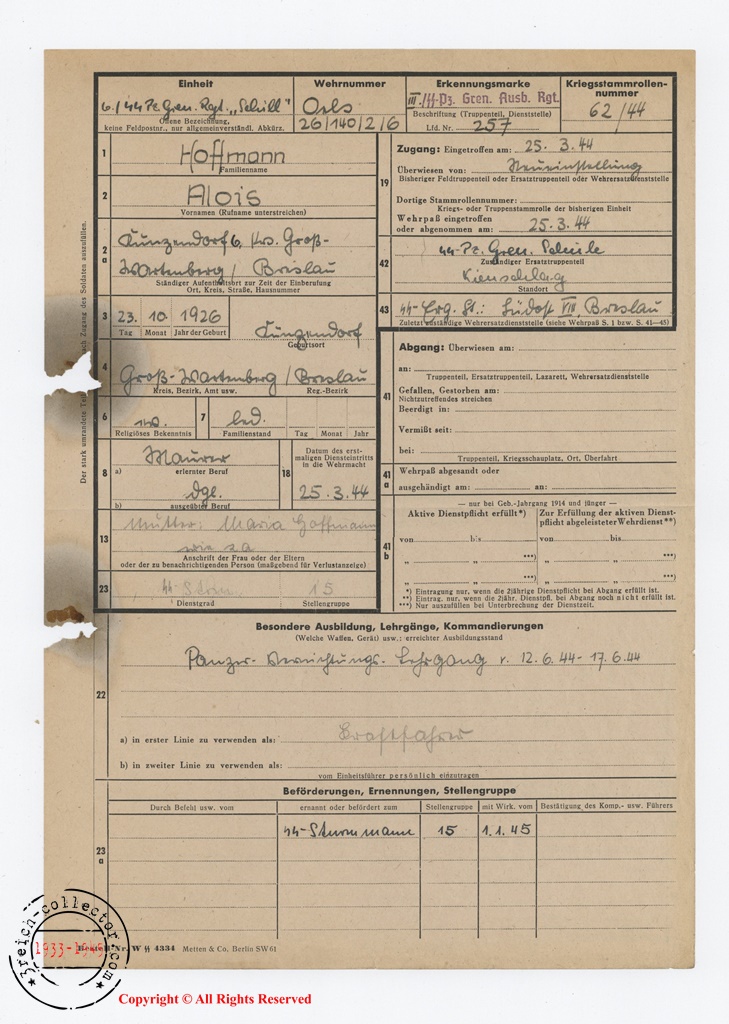 Einheit
6./SS Pz. Gren. Rgt. „Schill"
Offene Bezeichnung,
keine Feldpostnr., nur allgemeinverständl. Abkürz.
Wehrnummer
Oels
26/140/2/6
Erkennungsmarke
III./SS-Pz. Gren. Ausb. Rgt.
Beschriftung (Truppenteil, Dienststelle)
Lfd. Nr. 257
Kriegsstammrollen-
nummer
62/44
1
Hoffmann
Familienname
2
Alois
Vornamen (Rufname unterstreichen)
2a
Kunzendorf 6, Krs. Groß-
Wartenberg / Breslau
Ständiger Aufenthaltsort zur Zeit der Einberufung
Ort, Kreis, Straße, Hausnummer
3
23. 10. 1926
Tag Monat Jahr der Geburt
Kunzendorf
Geburtsort
4
Groß-Wartenberg / Breslau
Kreis, Bezirk, Amt usw. Reg.-Bezirk
6
Religiöses Bekenntnis
7
led.
Familienstand
Tag Monat Jahr
8
a)
Maurer
erlernter Beruf
b)
dgl.
ausgeübter Beruf
18
Datum des erst-
maligen Diensteintritts
in die Wehrmacht
25.3.44
13
Mutter: Maria Hoffmann
wie 2a
Anschrift der Frau oder der Eltern
oder der zu benachrichtigenden Person (maßgebend für Verlustanzeige)
23
15
Dienstgrad Stellengruppe
19
Zugang: Eingetroffen am: 25. 3. 44
Überwiesen von: Neueinstellung
Bisheriger Feldtruppenteil oder Ersatztruppenteil oder Wehrersatzdienststelle
Dortige Stammrollennummer:
Kriegs- oder Truppenstammrolle der bisherigen Einheit
Wehrpaß eingetroffen
oder abgenommen am: 25.3.44
42
SS-Pz. Gren. Schule
Zuständiger Ersatztruppenteil
Kienschlag
Standort
43
SS-Erg. St.: Südost VIII, Breslau
Zuletzt zuständige Wehrersatzdienststelle (siehe Wehrpaß S. 1 bzw. S. 41—45)
41
Abgang: Überwiesen am:
an:
Truppenteil, Ersatztruppenteil, Lazarett, Wehrersatzdienststelle
Gefallen, Gestorben am:
Nichtzutreffendes streichen
Beerdigt in:
Vermißt seit:
bei:
Truppenteil, Kriegsschauplatz, Ort, Überfahrt
41a
Wehrpaß abgesandt oder
ausgehändigt am: an:
41b
— nur bei Geb.-Jahrgang 1914 und jünger —
Aktive Dienstpflicht erfüllt*)
von bis
„ „ ***)
„ „ ***)
Zur Erfüllung der aktiven Dienst-
pflicht abgeleisteter Wehrdienst**)
von bis
„ „ ***)
„ „ ***)
*) Eintragung nur, wenn die 2jährige Dienstpflicht bei Abgang erfüllt ist.
**) Eintrag. nur, wenn die 2jähr. Dienstpfl. bei Abgang noch nicht erfüllt ist.
***) Nur auszufüllen bei Unterbrechung der Dienstzeit.
22
Besondere Ausbildung, Lehrgänge, Kommandierungen
(Welche Waffen, Gerät) usw.: erreichter Ausbildungsstand
Panzer-Vernichtungs-Lehrgang v. 12.6.44 - 17.6.44
a) in erster Linie zu verwenden als: Kraftfahrer
b) in zweiter Linie zu verwenden als:
vom Einheitsführer persönlich einzutragen
23a
Beförderungen, Ernennungen, Stellengruppe
Durch Befehl usw. vom ernannt oder befördert zum Stellengruppe mit Wirk. vom Bestätigung des Komp.- usw. Führers
SS-Sturmmann 15 1.1.45
Der stark umrandete
Zugang des Soldaten auszufüllen.
Nr. W SS 4334 Metten & Co. Berlin SW 61
3reich-collector.com
1933-1945
Copyright © All Rights Reserved